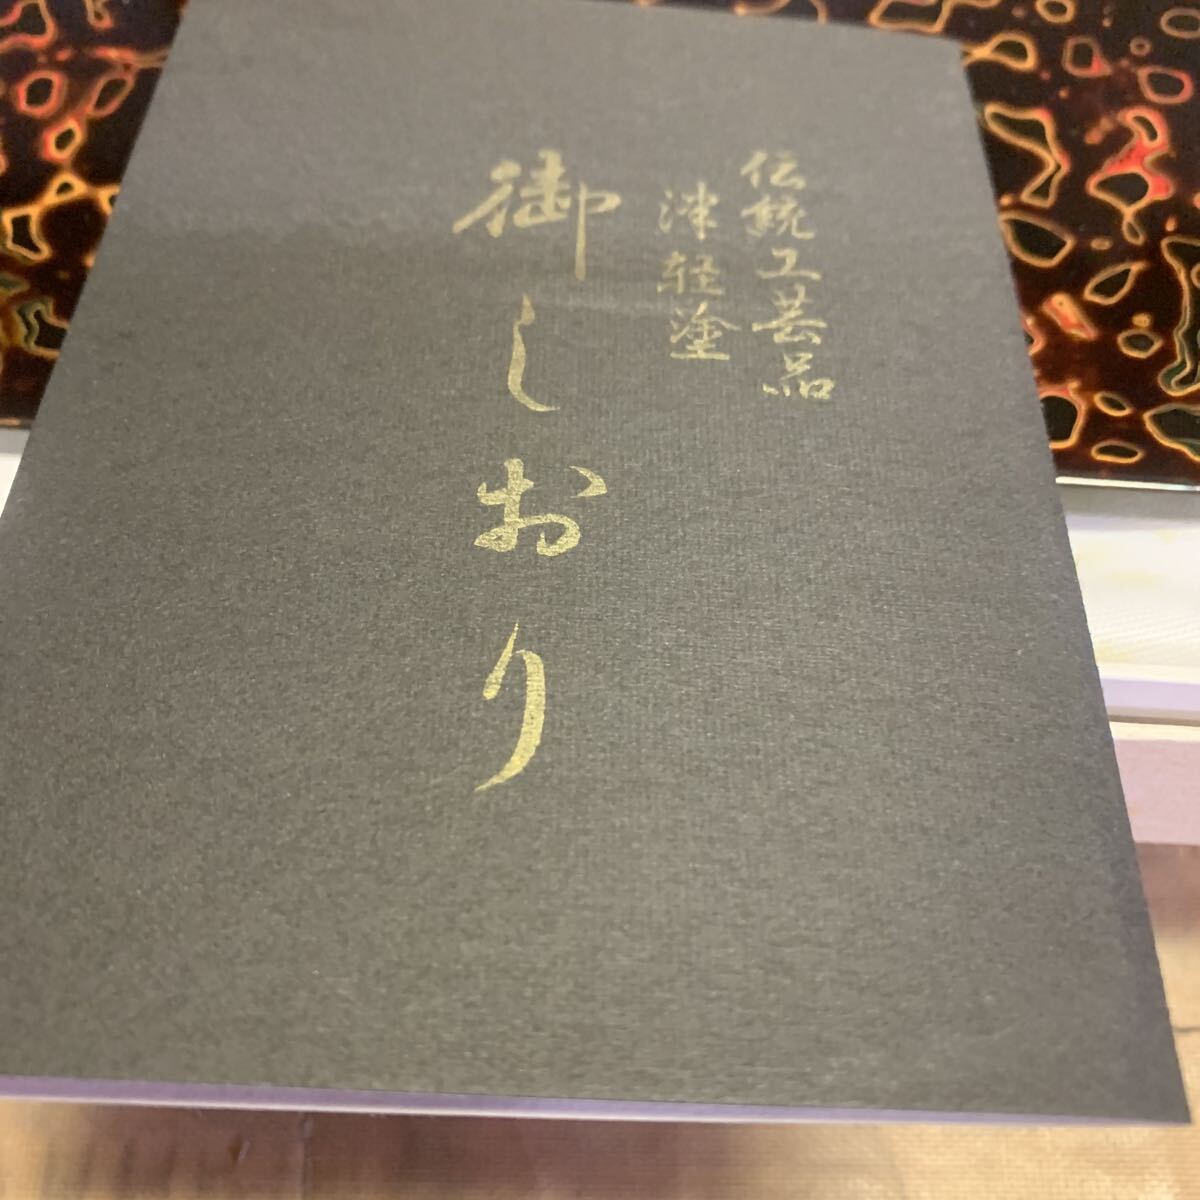 伝統工芸品
津軽塗
御しおり